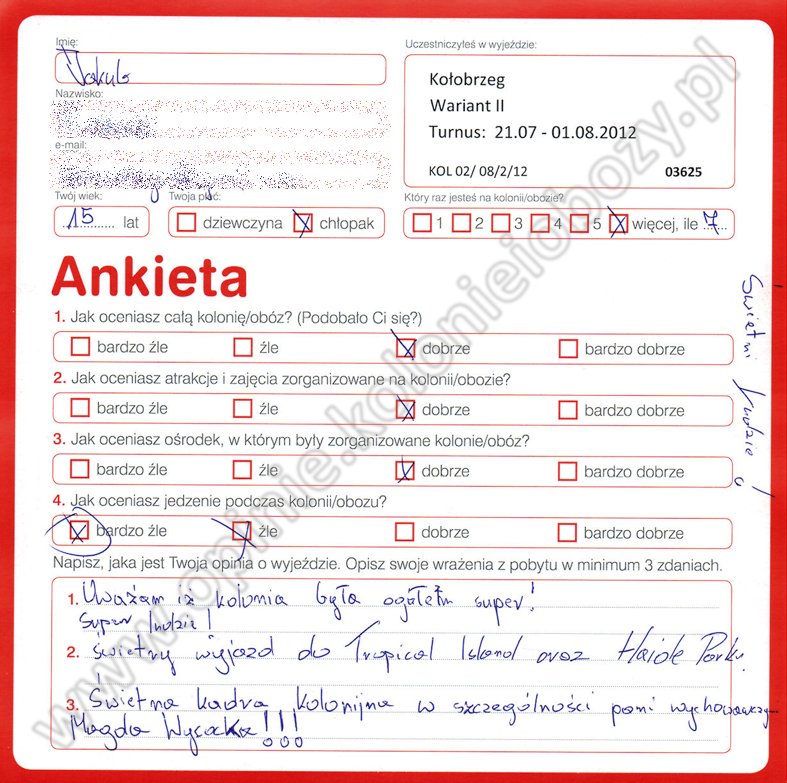 Imię:
Jakub
Uczestniczyłeś w wyjeździe:
Kołobrzeg
Wariant II
Turnus: 21.07 - 01.08.2012
KOL 02/ 08/2/12 03625
Nazwisko:
e-mail:
Twój wiek:
15 lat
Twoja płeć:
dziewczyna chłopak
Który raz jesteś na kolonii/obozie?
1 2 3 4 5 więcej, ile 7
Ankieta
1. Jak oceniasz całą kolonię/obóz? (Podobało Ci się?)
bardzo źle źle dobrze bardzo dobrze
2. Jak oceniasz atrakcje i zajęcia zorganizowane na kolonii/obozie?
bardzo źle źle dobrze bardzo dobrze
3. Jak oceniasz ośrodek, w którym były zorganizowane kolonie/obóz?
bardzo źle źle dobrze bardzo dobrze
4. Jak oceniasz jedzenie podczas kolonii/obozu?
bardzo źle źle dobrze bardzo dobrze
Napisz, jaka jest Twoja opinia o wyjeździe. Opisz swoje wrażenia z pobytu w minimum 3 zdaniach.
1. Uważam iż kolonia była ogółem super!
Super ludzie!
2. świetny wyjazd do Tropical Island oraz Haide Parku.
3. Świetna kadra kolonijna w szczególności pani wychowawczyni
Magda !!!
Świetni ludzie!
www.opinie.kolonieiobozy.pl